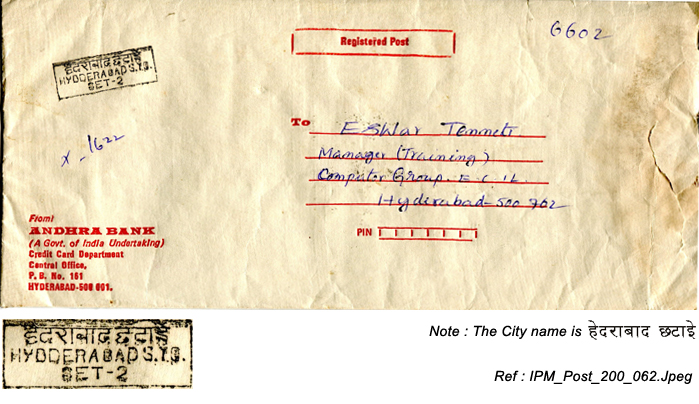 6602
Registered Post
हैदराबाद छटाई
HYDDERABAD S.T.G.
SET-2
To
Eshlar Temmeti
Manager (Training)
Computer Group. E. C. I L.
Hyderabad-500 762
X-1622
PIN
From:
ANDHRA BANK
(A Govt. of India Undertaking)
Credit Card Department
Central Office,
P. B. No. 161
HYDERABAD-500 001.
हैदराबाद छटाई
HYDDERABAD S.T.G.
SET-2
Note : The City name is हेदराबाद छटाई
Ref : IPM_Post_200_062.Jpeg